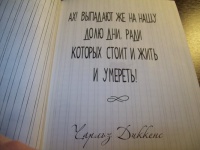 АХ! ВЫПАДАЮТ ЖЕ НА НАШУ
ДОЛЮ ДНИ, РАДИ
КОТОРЫХ СТОИТ И ЖИТЬ
И УМЕРЕТЬ!
Чарльз Диккенс